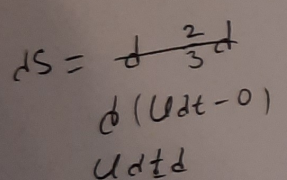 dS = d 2/3 d
d(Udt - 0)
Udtd